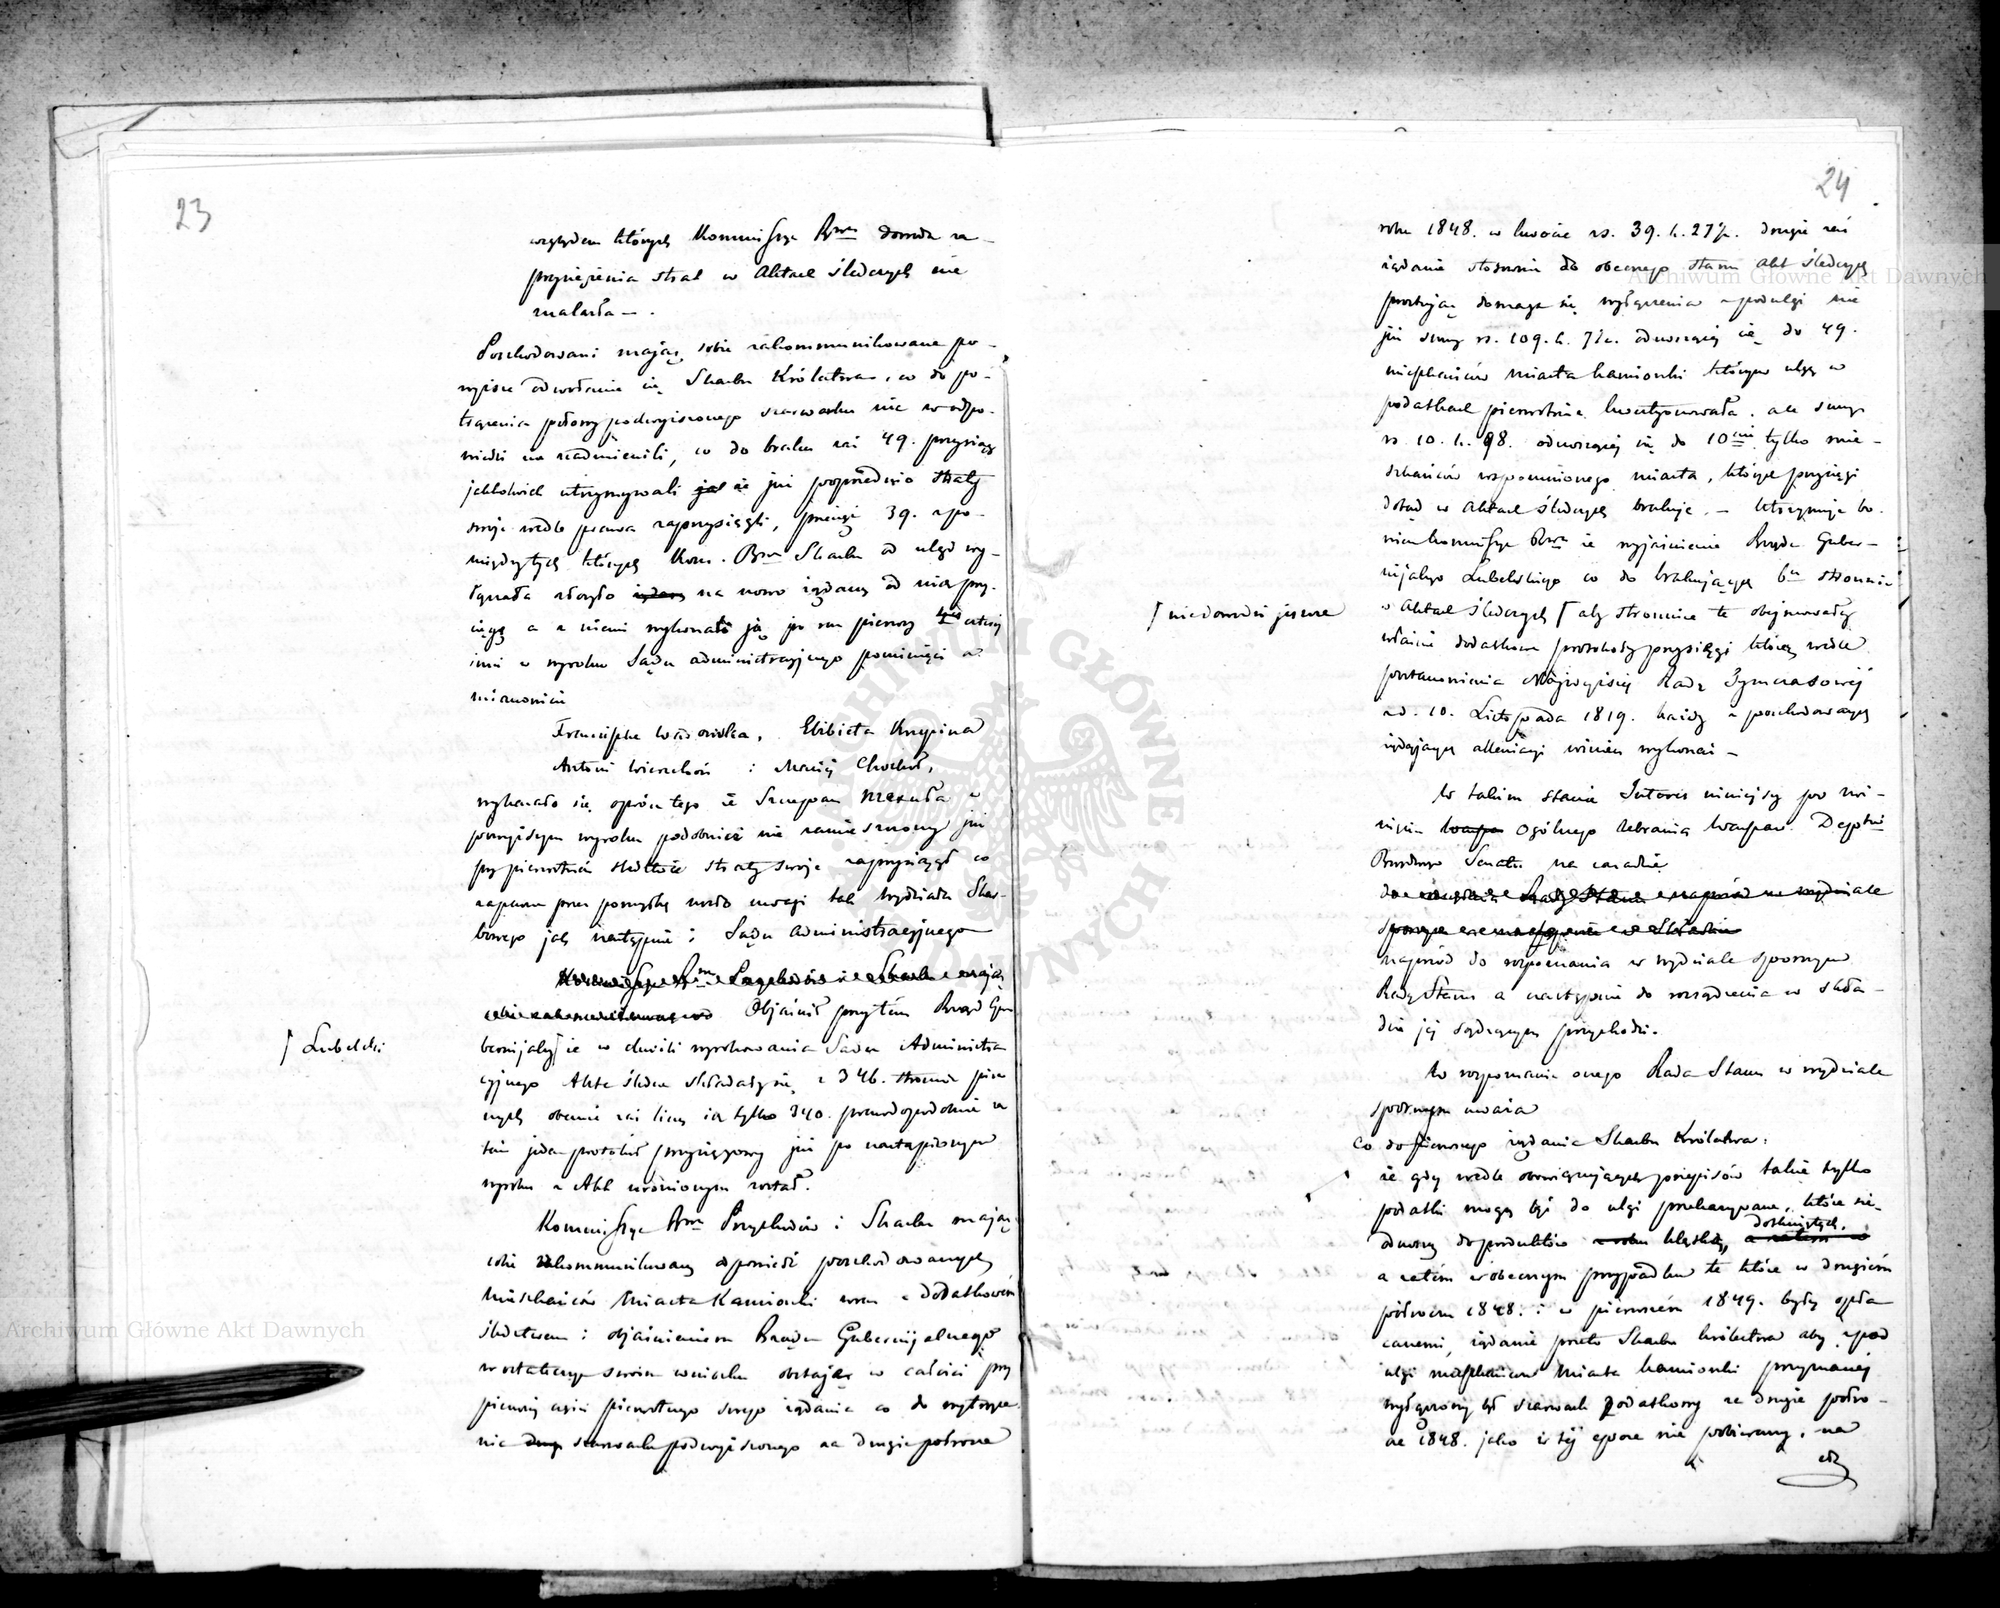 23
względem których Kommissya Rzwa dowodu za-
przysiężenia strat w Aktach śledczych nie
znalazła —.
Poszkodowani mając sobie zakommunikowane po-
wyższe odwołanie się Skarbu Królestwa, co do po-
trącenia połowy podwyższonego szarwarku nic w odpo-
wiedzi nie nadmienili, co do braku zaś 49. przysiąg
jakkolwiek utrzymywali że już poprzednio straty
swoje wedle prawa zaprzysięgli, przecież 39. z po-
między tych których Kom. Rzwa Skarbu od ulgi wy-
łączała złożyło na nowo żądaną od nich przy-
sięgę a z niemi wykonali ją po raz pierwszy
inni w wyroku Sądu administracyjnego pominięci a
mianowicie
Franciszka Wasowska, Elżbieta Krupina
Antoni Wierzchoń i Maciej Chochoł,
wykazało się oprócz tego że Szczepan Mazur
powyższym wyrokiem podobnież nie zamieszczony już
przy pierwotnem śledztwie straty swoje zaprzysiągł co
zapewne przez pomyłkę uszło uwagi tak Wydziału Skar-
bowego jak następnie i Sądu Administracyjnego
Kommissya Rzwa Przychodów i Skarbu mając
sobie zakommunikowane Objaśnił przytém Rząd Gu-
bernijalny że w chwili wyrokowania Sądu Administra
cyjnego Akta śledcze składały się z 346. stronnic pisa
nych obecnie zaś liczą ich tylko 340. prawdopodobnie za
tém jeden protokół przysięgowy już po nastąpionym
wyroku z Akt uroniony został.
Lubelski
Kommissya Rzwa Przychodów i Skarbu mając
sobie zakommunikowaną odpowiedź poszkodowanych
Mieszkańców Miasta Kamionki wraz z dodatkowém
śledztwem i objaśnieniem Rządu Gubernijalnego
w ostatecznym swoim wniosku obstając w całości przy
pierwszej części pierwotnego swego żądania co do wyłącze
nia szarwarku podwyższonego za drugie półrocze
24
roku 1848. w kwocie rs. 39. k. 27½. drugie zaś
żądanie stosownie do obecnego stanu Akt śledczych
prostując domaga się wyłączenia z pod ulgi nie
już sumy rs. 109. k. 7½. odnoszącej się do 49.
mieszkańców miasta Kamionki którym ulgę w
podatkach pierwotnie kwestyonowała, ale sumy
rs. 10. k. 98. odnoszącej się do 10ciu tylko mie-
szkańców wspomnionego miasta, których przysięgi
dotąd w Aktach śledczych brakuje. — Utrzymuje bo-
wiem Kommissya Rzwa że wyjaśnienie Rządu Guber-
nijalnego Lubelskiego co do brakujących 6ciu stronnic
w Aktach śledczych aby stronnice te obejmowały
niedowodzi jeszcze
właśnie dodatkowe protokoły przysięgi którą wedle
postanowienia Najwyższej Rady Tymczasowej
z d. 10. Listopada 1819. każdy z poszkodowanych
żądających allewiacyi winien wykonać —
W takim stanie Interes niniejszy po wni-
Ogólnego Zebrania Warszaw. Deptów
Rządzącego Senatu na zasadzie
naprzód do rozpoznania w wydziale spornym
Rady Stanu a następnie do rozsądzenia w skła-
dzie jej sądzącym przychodzi.
W rozpoznaniu onego Rada Stanu w wydziale
spornym uważa
Co do pierwszego żądania Skarbu Królestwa:
że gdy wedle obowiązujących przepisów takie tylko
podatki mogą być do ulgi przekazywane, które się
odnoszą do produktów klęską, dotkniętych,
a zatém w obecnym przypadku te które w drugiem
półroczu 1848. i w pierwszém 1849. były opła
canemi, żądanie przeto Skarbu Królestwa aby z pod
ulgi mieszkańcom Miasta Kamionki przyznanej
wyłączony był szarwark podatkowy za drugie półro-
cze 1848. jako w tej epoce nie pobierany, na